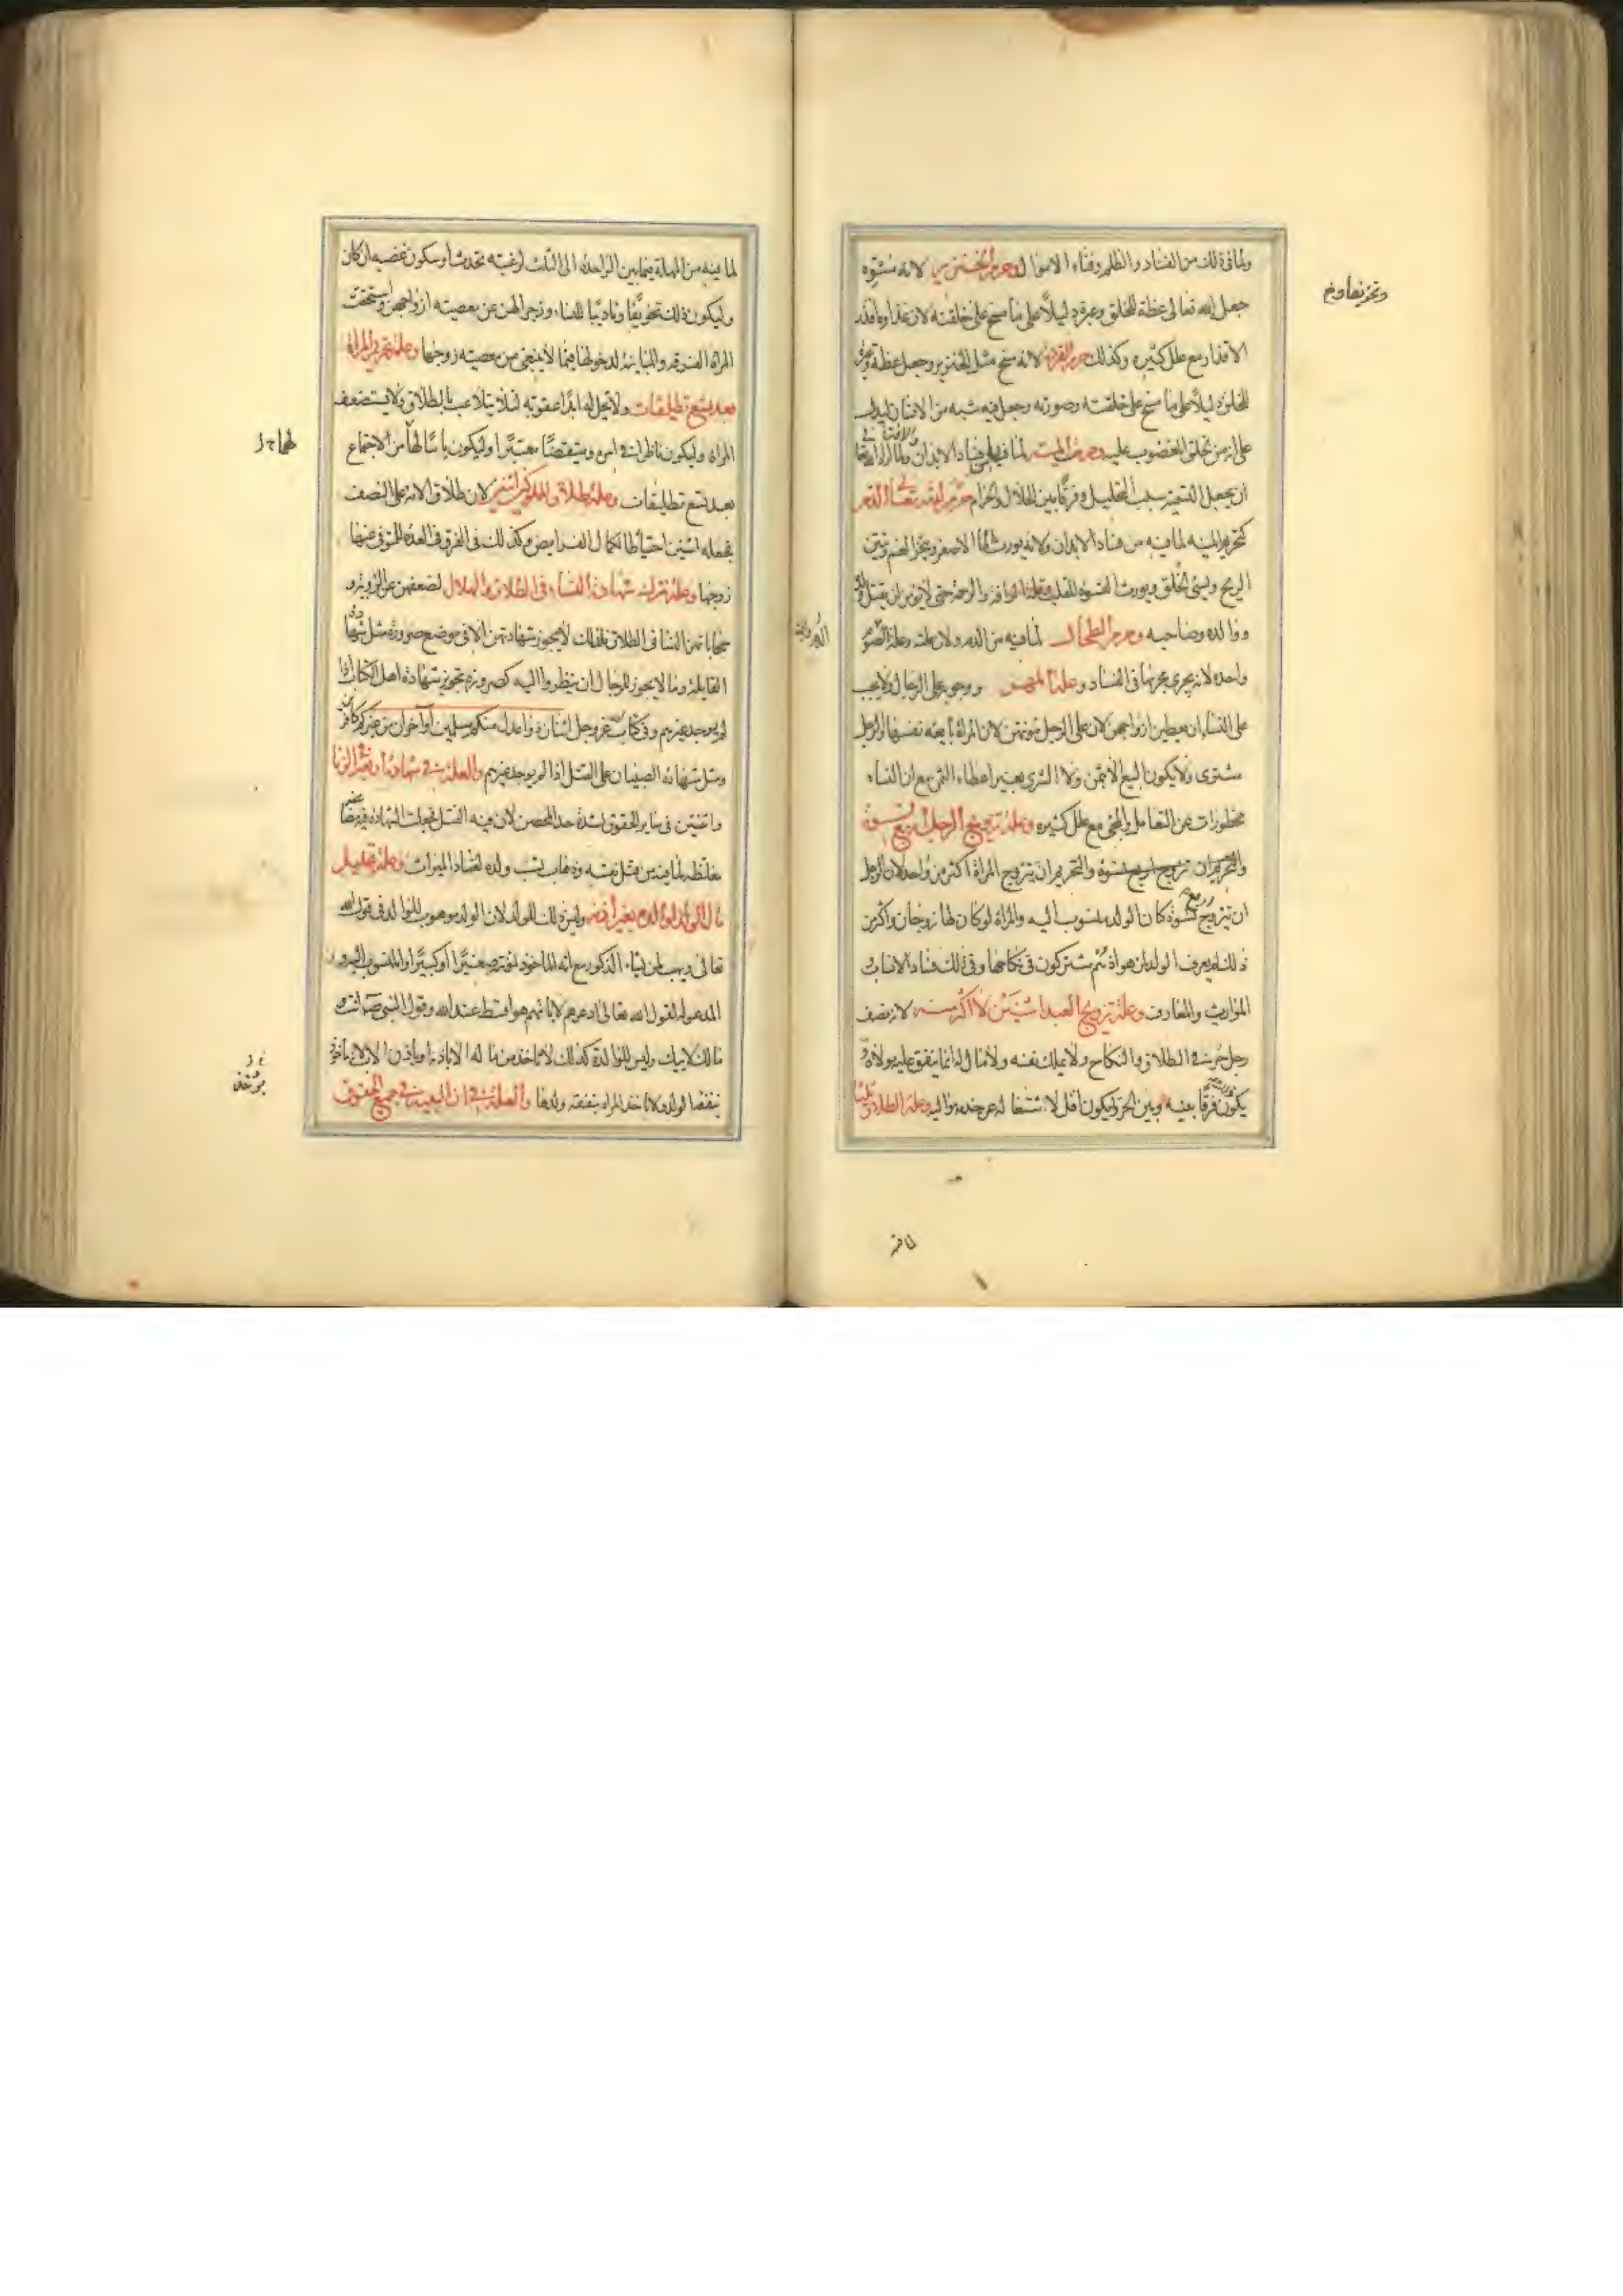 ولما فى ذلك من الفساد والظلم وفناء الاموال وحرم الخنزير لانه مشوه
جعل الله تعالى عظة للخلق وعبرة ودليلاً على ما مسخ على خلقته لان غذاه اقذر
الاقذار مع علل كثيره وكذلك حرم القرد لانه مسخ مثل الخنزير وجعل عظة وعبرة
للخلق دليلاً على ما مسخ على خلقته وصورته وجعل فيه شبه من الانسان ليدل
على انه من الخلق المغضوب عليه وحرمت الميتة لما فيها من فساد الابدان والافة ولما اراد الله تعالى
ان يجعل التسمية سبب التحليل وفرقا بين الحلال والحرام وحرم الله تعالى الدم
كتحريم الميته لما فيه من فساد الابدان ولانه يورث الماء الاصفر ويبخر الفم وينتن
الريح ويسئ الخلق ويورث القسوة للقلب وقلة الرافه والرحمة حتى لا يؤمن ان يقتل ولده
ووالده وصاحبه وحرم الطحال لما فيه من الدم ولان علته وعلة الدم والميتة
واحده لانه يجرى مجراها فى الفساد وعلة المهر ووجوبه على الرجال ولا يجب
على النساء ان يعطين ازواجهن لان على الرجل مؤنتهن لان المراة بايعه نفسها والرجل
مشترى ولا يكون البيع الا بثمن ولا الشرى بغير اعطاء الثمن مع ان النساء
محظورات عن التعامل والمجئ مع علل كثيره وعلة تزويج الرجل اربع نسوة
والتحريم ان تتزوج المراة اكثر من واحد لان الرجل
ان تزوج اربع نسوة كان الولد منسوب اليه والمراة لو كان لها زوجان واكثر من
ذلك لم يعرف الولد لمن هو اذ هم مشتركون فى نكاحها وفى ذلك فساد الانساب و
المواريث والمعارف وعلة تزويج العبد اثنتين لا اكثر منه لانه نصف
رجل حر فى الطلاق والنكاح ولا يملك نفسه ولا مال له انما ينفق عليه مولاه و
يكون فرقا بينه وبين الحر وليكون اقل لاشتغاله عن خدمه مواليه وعلة الطلاق ثلثا
لما فيه من المهلة فيما بين الواحده الى الثلث لرغبته تحدث او سكون غضبه ان كان
وليكون ذلك تخويفا وتاديبا للنساء وزجرا لهن عن معصيته ازواجهن واستحقت
المراة الفرقه والمباينة لدخولها فيما لا ينبغى من معصيته زوجها وعلة تحريم المراة
بعد تسع تطليقات ولا تحل له ابدا عقوبه لئلا يتلاعب بالطلاق ولا يستضعف
المراة وليكون ناظرا فى امره ومتيقضا معتبرا وليكون ياسا لها من الاجتماع
بعد تسع تطليقات وعلة طلاق المملوك اثنين لان طلاق الامة على النصف
فجعله اثنين احتياطا لكمال الفرايض وكذلك فى الفرق فى العده للمتوفى عنها
زوجها وعلة ترك شهادة النساء فى الطلاق والهلال لضعفهن عن الروية و
محاباتهن النسا فى الطلاق فلذلك لا يجوز شهادتهن الا فى موضع ضرورة مثل شهادة
القابلة وما لا يجوز للرجال ان ينظروا اليه كضرورة تجويز شهادة اهل الكتاب اذا
لم يوجد غيرهم وفى كتاب الله عز وجل اثنان ذوا عدل منكم مسلمين او اخران من غيركم كافرين
ومثل شهادة الصبيان على القتل اذا لم يوجد غيرهم والعلة فى شهادة اربعة فى الزنا
واثنين فى ساير الحقوق لشدة حد المحصن لان فيه القتل فجعلت الشهادة فيه مضاعفة
مغلظه لما فيه من قتل نفسه وذهاب نسب ولده لفساد الميراث وعلة تحليل
مال الولد لوالده بغير اذنه وليس ذلك للولد لان الولد موهوب للوالد فى قول الله
تعالى ويهب لمن يشاء الذكور مع انه الماخوذ بمؤنته صغيرا او كبيرا والمنسوب اليه و
المدعو له لقول الله تعالى ادعوهم لابائهم هو اقسط عند الله وقول النبى ص انت و
مالك لابيك وليس للوالدة كذلك لا تاخذ من ماله الا باذنه او باذن الاب لانه ماخوذ
بنفقة الولد ولا تاخذ المراه بنفقه ولدها والعلة فى ان البينة فى جميع الحقوق